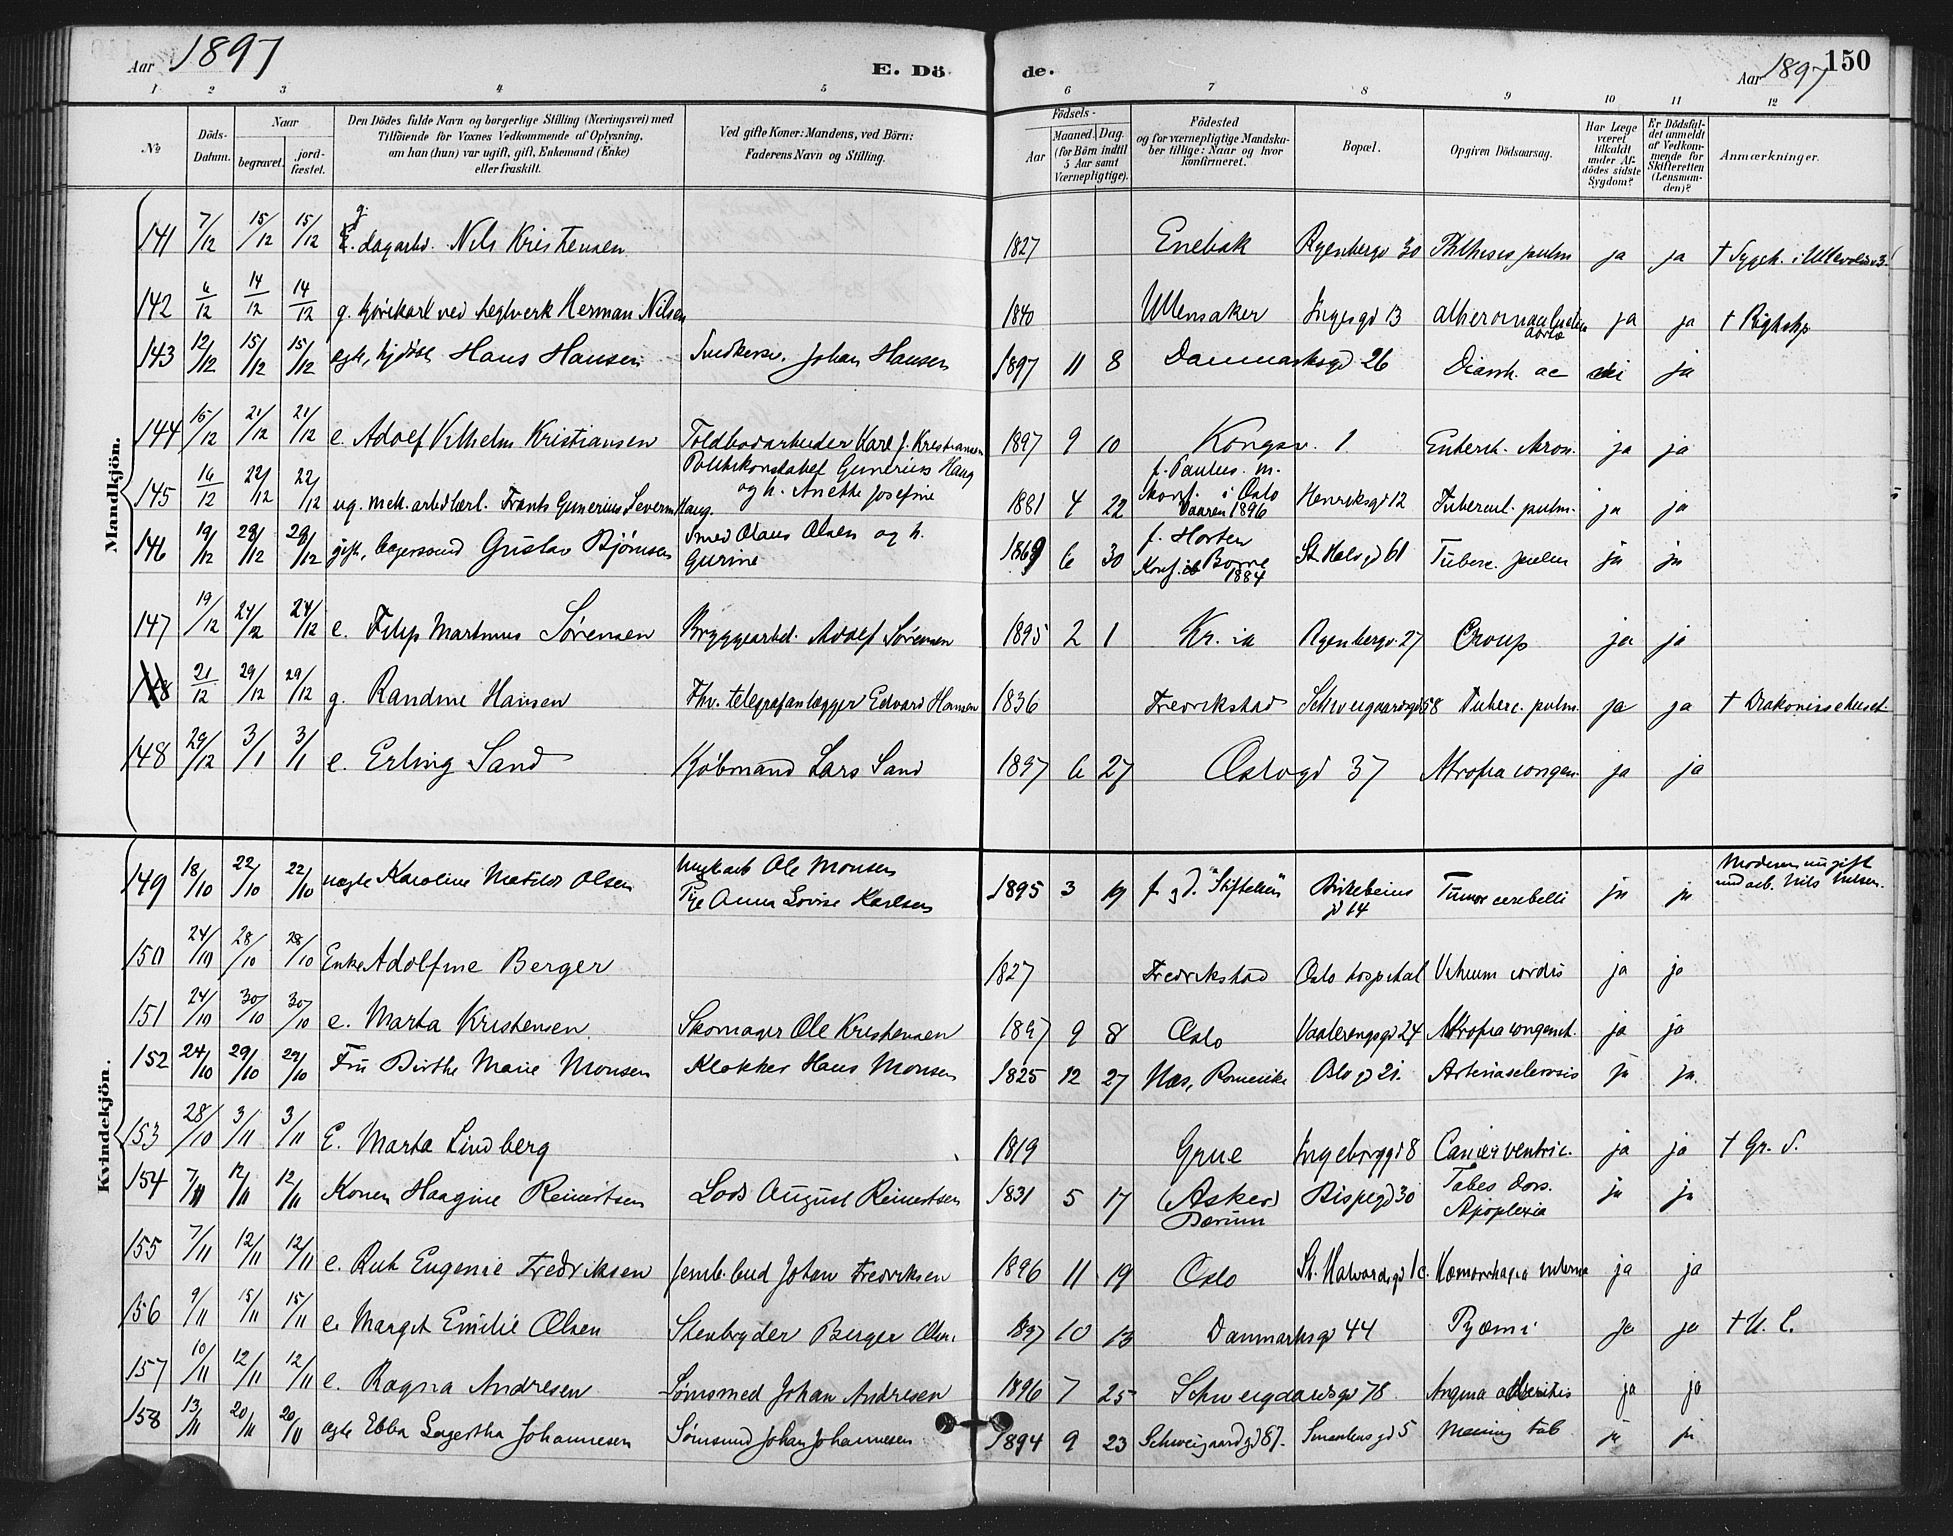 Aar 1897 E. Dö
de. Aar 1897 150
1 2 3 4 5 6 7 8 9 10 11 12
№ Döds-Datum. Naar begravet. jord-fæstet.
Den Dödes fulde Navn og borgerlige Stilling (Næringsvei) med
Tilföiende for Voxnes Vedkommende af Oplysning,
om han (hun) var ugift, gift, Enkemand (Enke)
eller fraskilt.
Ved gifte Koner: Mandens, ved Börn:
Faderens Navn og Stilling.
Födsels-
Aar Maaned. Dag.
(for Börn indtil 5 Aar samt Værnepligtige).
Födested
og for værnepligtige Mandska-
ber tillige: Naar og hvor
konfirmeret.
Bopæl.
Opgiven Dödsaarsag.
Har Læge været tilkaldt under Af-dödes sidste Sygdom?
Er Dödsfal-det anmeldt af Vedkom-mende for Skifteretten (Lensman-den)?
Anmærkninger.
Mandkjön.
141 7/12 15/12 15/12 g. dagarbd. Nils Kristensen 1827 Enebak Ryenbergv 30 Phthisis pulm ja ja
142 6/12 14/12 14/12 g. kjørekarl ved teglverk Herman Nilsen 1840 Ullensaker Inges gd 13 ja ja † Rigshsp
143 12/12 15/12 15/12 egte, hjdøbt Hans Hansen Snedkersv. Johan Hansen 1897 11 8 Danmarksgd 26 Diarrh. ac nei ja
144 15/12 21/12 21/12 e. Adolf Vilhelm Kristiansen Toldbodarbeider Karl J. Kristiansen 1897 9 10 Kongsv. 1 Enterit. kron. ja ja
145 16/12 22/12 22/12 ug. mek. arbd lærl. Frants Gunerius Severin Haug. Politikonstabel Gunerius Haug og h. Anethe Josefine 1881 4 22 f. Paulus. m. Konf. i Oslo Vaaren 1896 Henriksgd 12 Tubercul. pulm. ja ja
146 19/12 28/12 28/12 gift, Gustav Bjørnsen Smed Olaus Olsen og h. Gurine 1869 6 30 f. Horten Konf. ib Borre 1884 St Halvgd 61 Tuberc. pulm ja ja
147 19/12 24/12 24/12 e. Filip Martinus Sørensen Bryggearbd. Adolf Sørensen 1895 2 1 Kr. ia Ryenbergv. 27 Croup ja ja
148 21/12 29/12 29/12 g. Randine Hansen Fhv. telegrafanlægger Edvard Hansen 1836 Fredrikstad Schweigaardsgd 58 Tuberc. pulm. ja ja † Diakonissehuset
148 29/12 3/1 3/1 e. Erling Sand Kjøbmand Lars Sand 1897 6 27 Oslogd 37 Atrofia congen. ja ja
Kvindekjön.
149 18/10 22/10 22/10 uegte Karoline Matilde Olsen Ole Monsen Pige Anna Lovise Karlsen 1895 3 19 f gd. "Stiftelsen" Birkebeiner gd 14 Tumor cerebelli ja ja Moderen nu gift med arb. Nils Nilsen.
150 24/10 28/10 28/10 Enke Adolfine Berger 1827 Fredrikstad Oslo hospital Vitium cordis ja ja
151 24/10 30/10 30/10 e. Marta Kristensen Skomager Ole Kristensen 1897 9 8 Oslo Vaalerengsgd 24 Atrofia congenit. ja ja
152 24/10 29/10 29/10 Fru Birthe Marie Monsen Klokker Hans Monsen 1825 12 27 Nes, Romerike Oslogd 21. Arteriasclerosis ja ja.
153 28/10 3/11 3/11 E. Marta Lindberg 1819 Grue Ingeborggd 8 Cancer ventric. ja ja † Gr. S.
154 7/11 12/11 12/11 Konen Haagine Reinertsen Lods August Reinertsen 1831 5 17 (Asker) Bærum Bispegd 30 Tabes dors. Apoplexia ja ja
155 7/11 12/11 12/11 e. Rut Eugenie Fredriksen Jernb. bud Johan Fredriksen 1896 11 19 Oslo St. Halvardsgd 1c. Hæmorrhagia interna ja ja
156 9/11 15/11 15/11 e. Margit Emilie Olsen Stenbryder Berger Olsen 1897 10 13 Danmarksgd 44 Pyæmi ja ja
157 10/11 12/11 12/11 e. Ragna Andresen Sømsmed Johan Andresen 1896 7 25 Schweigaardsgd 78 Angina ja ja
158 13/11 20/11 20/11 egte Ebba Lagertha Johannesen Sømsmed Johan Johannesen 1894 9 23 Schweigaardgd 87. Smaalensgd 5 Mening tub ja ja